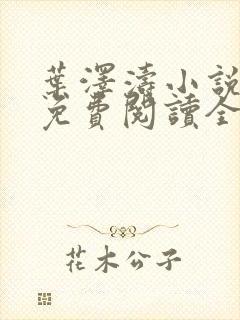 葉澤濤小說
免費閱讀全
花木公子